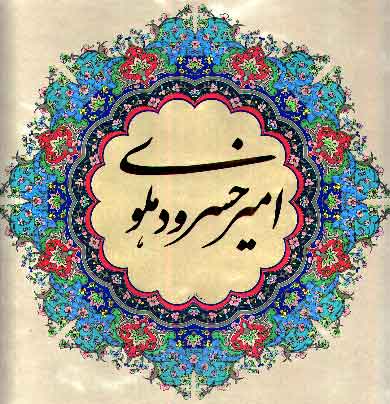 امیر خسرو دهلوی